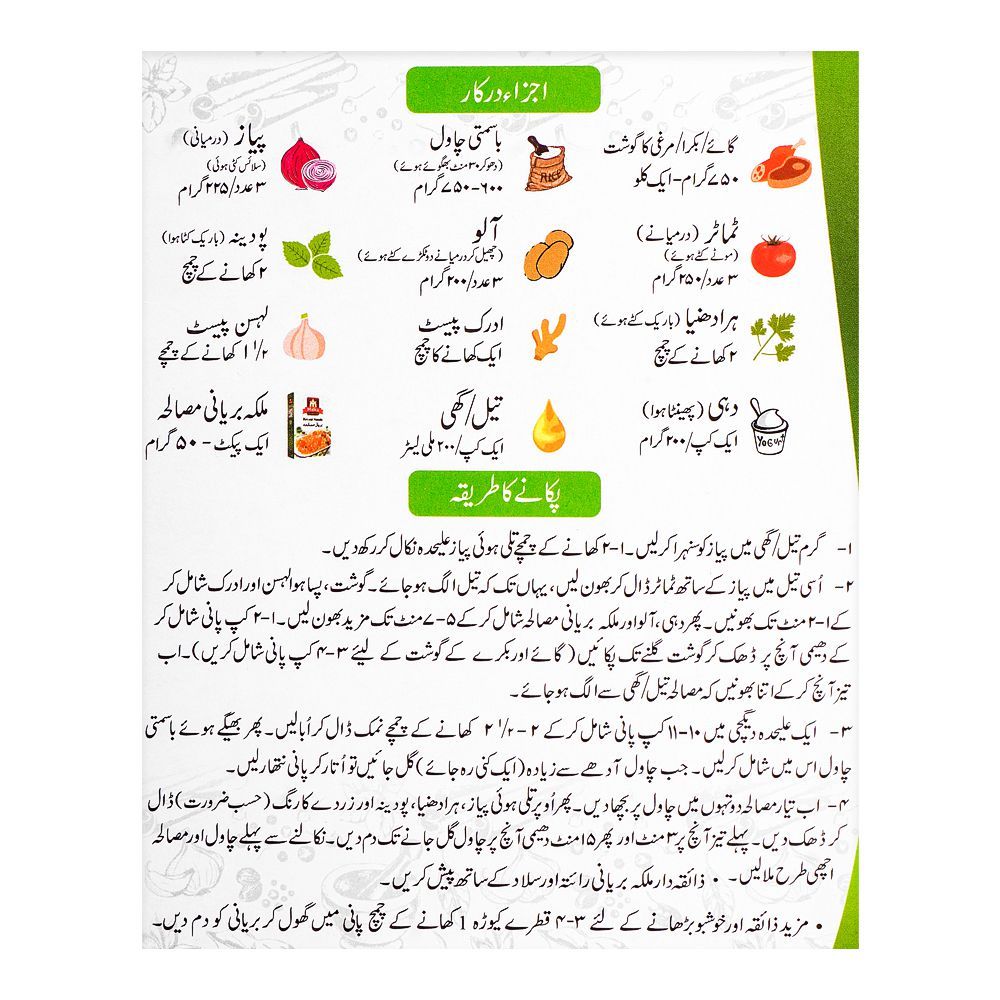 اجزاء درکار
گائے/بکرا/مرغی کا گوشت
۷۵۰ گرام-ایک کلو
باسمتی چاول
(دھوکر ۳۰ منٹ بھگوئے ہوئے)
۶۰۰-۷۵۰ گرام
RICE
پیاز (درمیانی)
(سلائس کٹی ہوئی)
۳ عدد/۲۲۵ گرام
ٹماٹر (درمیانے)
(موٹے کٹے ہوئے)
۳ عدد/۲۵۰ گرام
آلو
(چھیل کر درمیانے دو ٹکڑے کٹے ہوئے)
۳ عدد/۲۰۰ گرام
پودینہ (باریک کٹا ہوا)
۲ کھانے کے چمچ
ہرا دھنیا (باریک کٹے ہوئے)
۲ کھانے کے چمچ
ادرک پیسٹ
ایک کھانے کا چمچ
لہسن پیسٹ
۱ ۱/۲ کھانے کے چمچے
دہی (پھینٹا ہوا)
ایک کپ/۲۰۰ گرام
YOGURT
تیل/گھی
ایک کپ/۲۰۰ ملی لیٹر
ملکہ بریانی مصالحہ
ایک پیکٹ - ۵۰ گرام
پکانے کا طریقہ
۱- گرم تیل/گھی میں پیاز کو سنہرا کر لیں۔ ۱-۲ کھانے کے چمچے تلی ہوئی پیاز علیحدہ نکال کر رکھ دیں۔
۲- اُسی تیل میں پیاز کے ساتھ ٹماٹر ڈال کر بھون لیں، یہاں تک کہ تیل الگ ہو جائے۔ گوشت، پسا ہوا لہسن اور ادرک شامل کر
کے ۱-۲ منٹ تک بھونیں۔ پھر دہی، آلو اور ملکہ بریانی مصالحہ شامل کر کے ۵-۷ منٹ تک مزید بھون لیں۔ ۱-۲ کپ پانی شامل کر
کے دھیمی آنچ پر ڈھک کر گوشت گلنے تک پکائیں (گائے اور بکرے کے گوشت کے لیئے ۳-۴ کپ پانی شامل کریں)۔ اب
تیز آنچ کر کے اتنا بھونیں کہ مصالحہ تیل/گھی سے الگ ہو جائے۔
۳- ایک علیحدہ دیگچی میں ۱۰-۱۱ کپ پانی شامل کر کے ۲ - ۲ ۱/۲ کھانے کے چمچے نمک ڈال کر اُبالیں۔ پھر بھیگے ہوئے باسمتی
چاول اس میں شامل کر لیں۔ جب چاول آدھے سے زیادہ (ایک کنی رہ جائے) گل جائیں تو اُتار کر پانی نتھار لیں۔
۴- اب تیار مصالحہ دو تہوں میں چاول پر بچھا دیں۔ پھر اُوپر تلی ہوئی پیاز، ہرا دھنیا، پودینہ اور زردے کا رنگ (حسب ضرورت) ڈال
کر ڈھک دیں۔ پہلے تیز آنچ پر ۳ منٹ اور پھر ۱۵ منٹ دھیمی آنچ پر چاول گل جانے تک دم دیں۔ نکالنے سے پہلے چاول اور مصالحہ
اچھی طرح ملا لیں۔ • ذائقہ دار ملکہ بریانی رائتہ اور سلاد کے ساتھ پیش کریں۔
• مزید ذائقہ اور خوشبو بڑھانے کے لئے ۳-۴ قطرے کیوڑہ 1 کھانے کے چمچ پانی میں گھول کر بریانی کو دم دیں۔